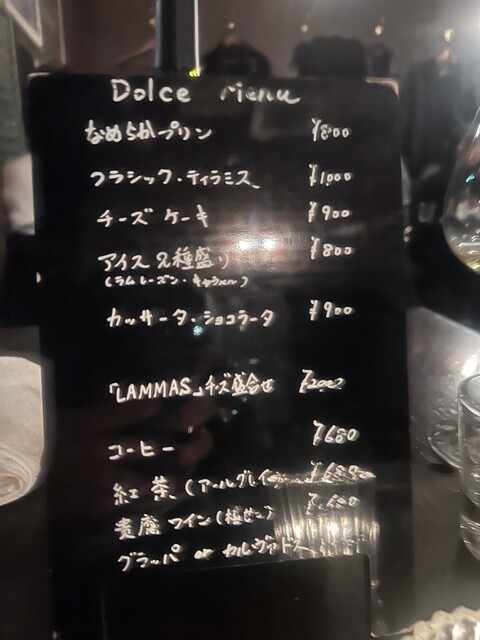 Dolce Menu
なめらかプリン ¥800
クラシック・ティラミス ¥1000
チーズケーキ ¥900
アイス2種盛り ¥800
(ラムレーズン・キャラメル)
カッサータ・ショコラータ ¥900
「LAMMAS」チーズ盛合せ ¥2000
コーヒー ¥680
紅茶(アールグレイ) ¥680
貴腐ワイン
グラッパ or カルヴァドス